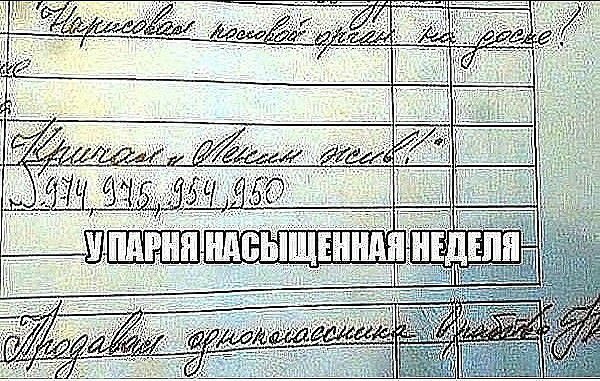 Нарисовал половой орган на доске!
ие
я
Кричал „Ленин жив!"
974, 975, 954, 950
У ПАРНЯ НАСЫЩЕННАЯ НЕДЕЛЯ
Продавал одноклассника в рабство